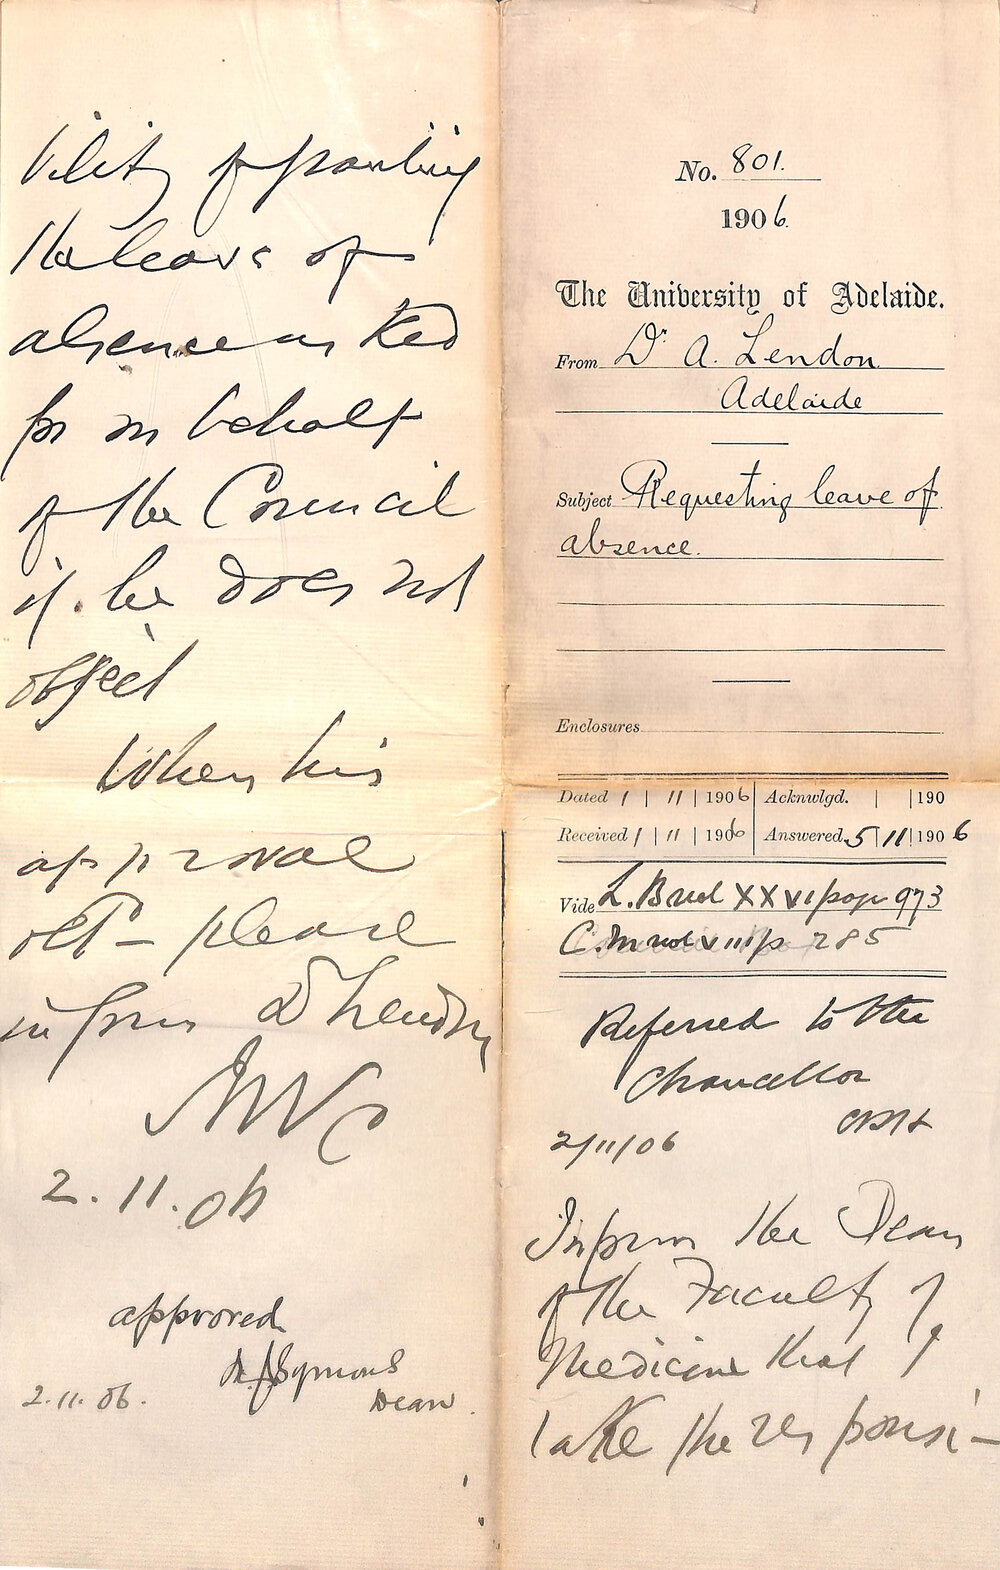 No. 801.
1906.
The University of Adelaide.
From Dr. A. Lendon
Adelaide
Subject Requesting leave of
absence.
Enclosures
Dated 1 | 11 | 1906 Acknwlgd. | | 190
Received 1 | 11 | 1906 Answered 5 | 11 | 1906
Vide L. B vol XXVI page 973
C. M vol VIII p 285
Referred to the
Chancellor
2/11/06
Inform the Dean
of the Faculty of
Medicine that I
take the responsi-
bility of granting
the leave of
absence asked
for on behalf
of the Council
if he does not
object
When his
approval
obtd please
inform Dr Lendon
2.11.06
approved
Symons
2.11.06. Dean.